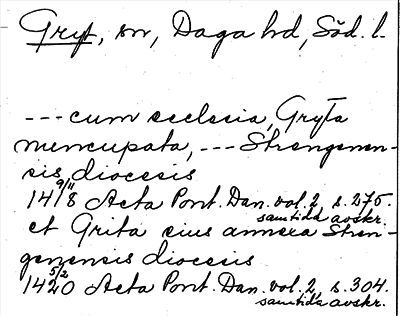 Gryt, sn, Daga hd, Söd. l.
--- cum ecclesia, Gryta
nuncupata, --- Strengenen-
sis diocesis
14 9/11 18 Acta Pont. Dan. vol. 2, s. 275.
samtida avskr.
et Grita eius annexa Stren-
genensis diocesis
14 5/2 20 Acta Pont. Dan. vol. 2, s. 304.
samtida avskr.